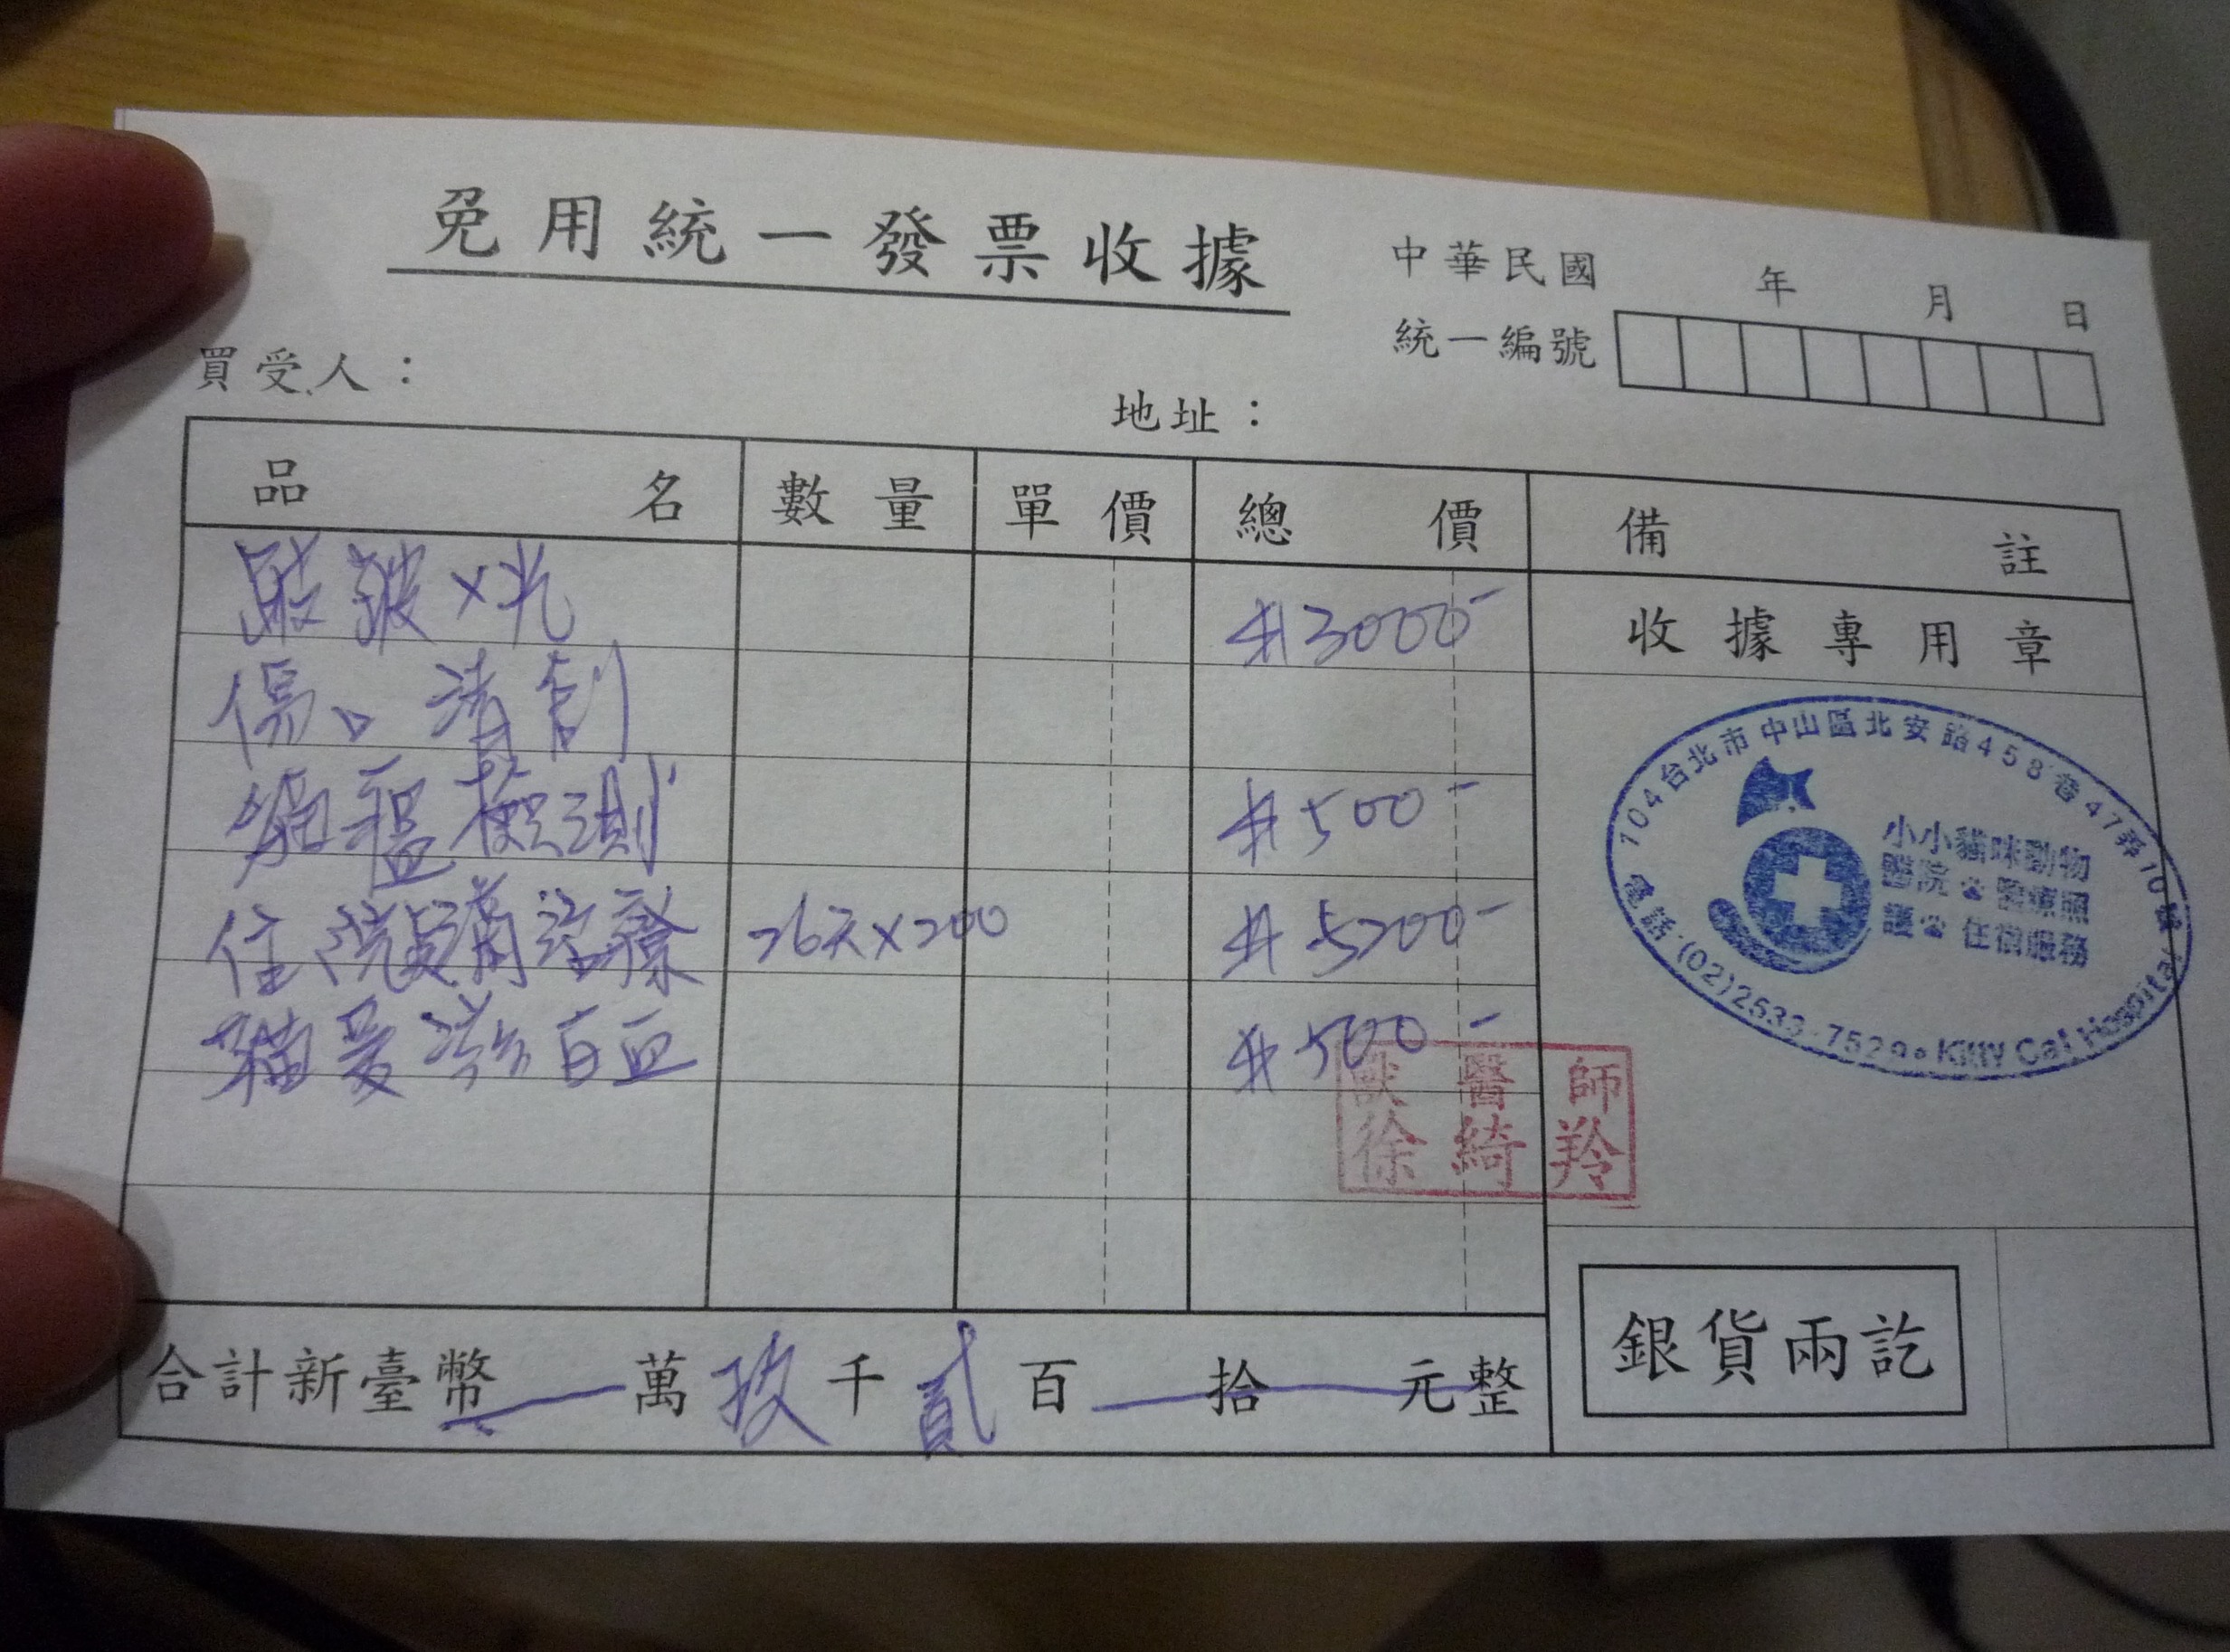 免用統一發票收據
中華民國 年 月 日
統一編號
買受人：
地址：
品名 數量 單價 總價 備註
$3000-
收據專用章
傷口清創
貓瘟檢測 $500-
住院點滴治療 26天×200 $5200-
貓愛滋白血 $500-
104台北市中山區北安路458巷47弄10號
小小貓咪動物
醫院 醫療照
護 住宿服務
電話:(02)2533-7529 Kitty Cat Hospital
獸醫師
徐綺羚
合計新臺幣 萬 玖 千 貳 百 拾 元整
銀貨兩訖